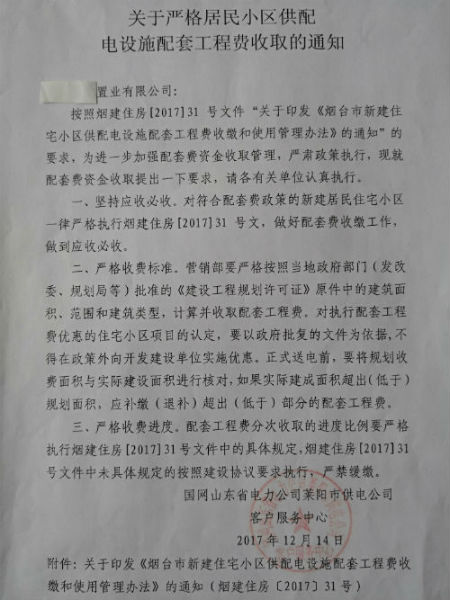 关于严格居民小区供配
电设施配套工程费收取的通知
置业有限公司:
按照烟建住房[2017]31 号文件“关于印发《烟台市新建住
宅小区供配电设施配套工程费收缴和使用管理办法》的通知”的
要求，为进一步加强配套费资金收取管理，严肃政策执行，现就
配套费资金收取提出一下要求，请各有关单位认真执行。
一、坚持应收必收。对符合配套费政策的新建居民住宅小区
一律严格执行烟建住房[2017]31 号文，做好配套费收缴工作，
做到应收必收。
二、严格收费标准。营销部要严格按照当地政府部门（发改
委、规划局等）批准的《建设工程规划许可证》原件中的建筑面
积、范围和建筑类型，计算并收取配套工程费。对执行配套工程
费优惠的住宅小区项目的认定，要以政府批复的文件为依据,不
得在政策外向开发建设单位实施优惠。正式送电前，要将规划收
费面积与实际建设面积进行核对,如果实际建成面积超出(低于)
规划面积，应补缴（退补）超出（低于）部分的配套工程费。
三、严格收费进度。配套工程费分次收取的进度比例要严格
执行烟建住房[2017]31号文件中的具体规定,烟建住房[2017]31
号文件中未具体规定的按照建设协议要求执行，严禁缓缴。
国网山东省电力公司莱阳市供电公司
客户服务中心
2017 年 12 月 14 日
附件：关于印发《烟台市新建住宅小区供配电设施配套工程费收
缴和使用管理办法》的通知（烟建住房〔2017〕31 号）